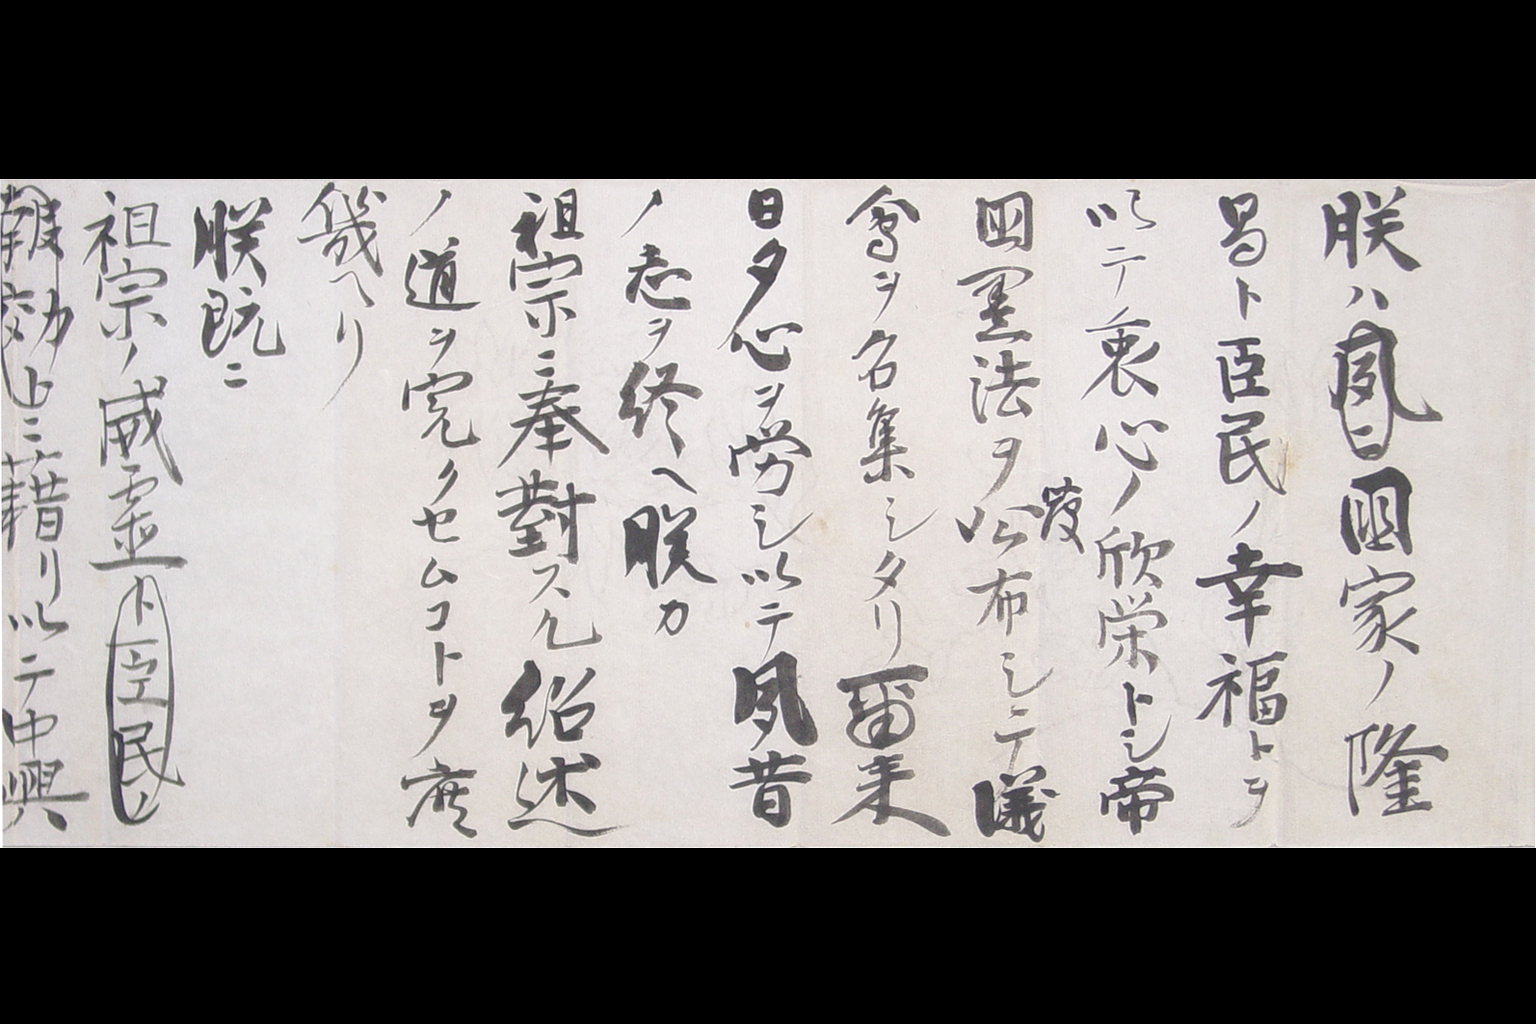 朕ハ夙ニ国家ノ隆
昌ト臣民ノ幸福トヲ
以テ衷心ノ欣栄トシ帝
国憲法ヲ公布シテ議
発
会ヲ召集シタリ爾来
日夕心ヲ労シ以テ夙昔
ノ志ヲ終ヘ朕カ
祖宗ニ奉對スル紹述
ノ道ヲ完クセムコトヲ庶
幾ヘリ
朕既ニ
祖宗ノ威霊ト臣民ノ
報効トニ藉リ以テ中興